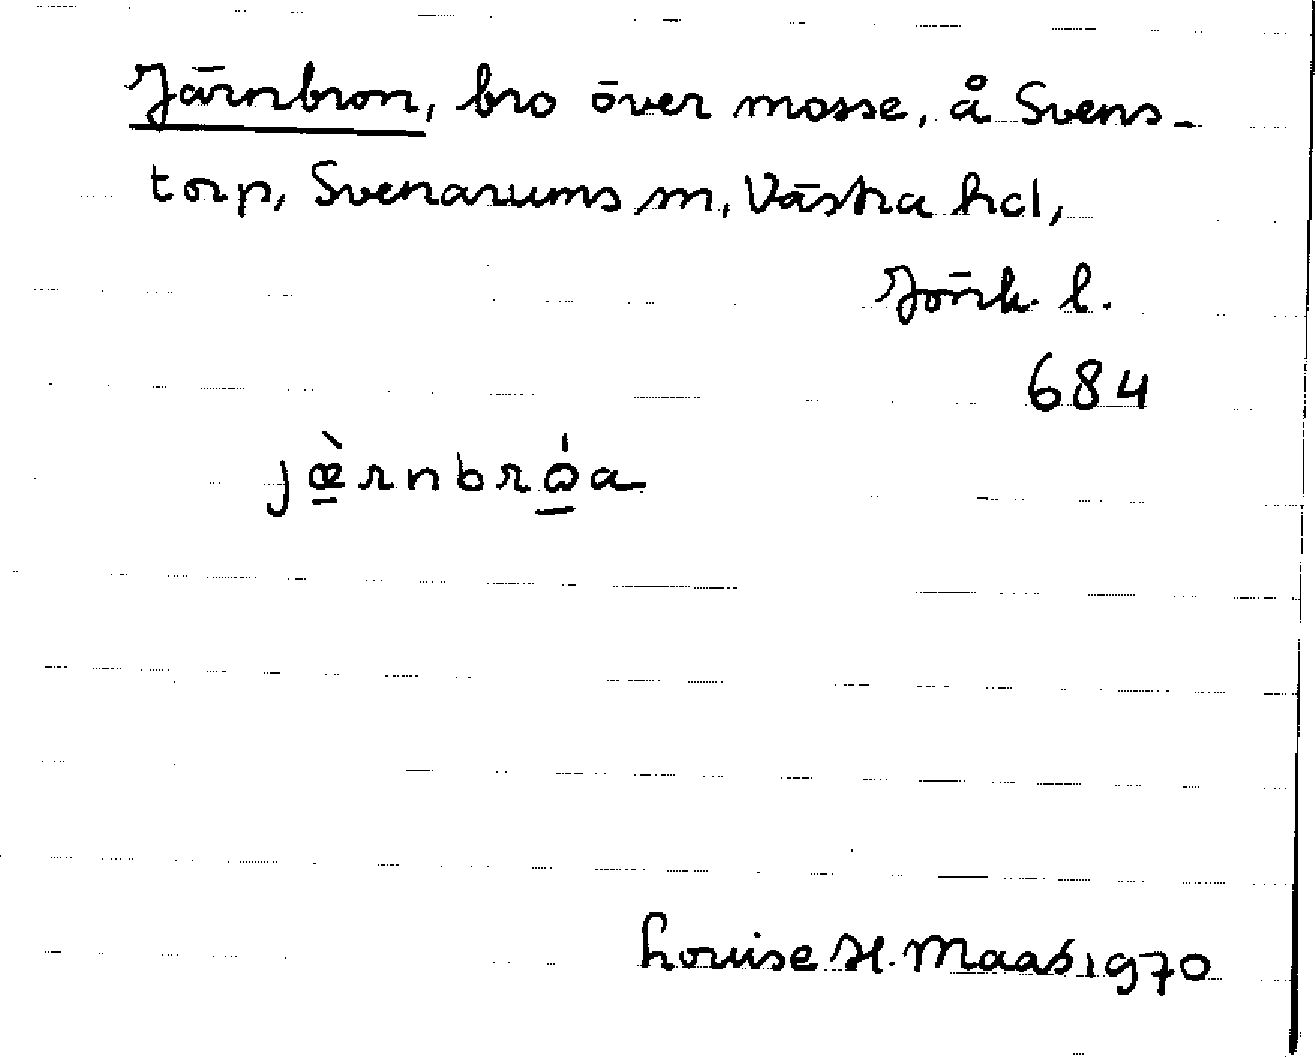 Järnbron, bro över mosse, å Svens-
torp, Svenarums sn, Västra hd,
Jönk. l.
684
jæ̀rnbrǿa
Louise H. Maas, 1970